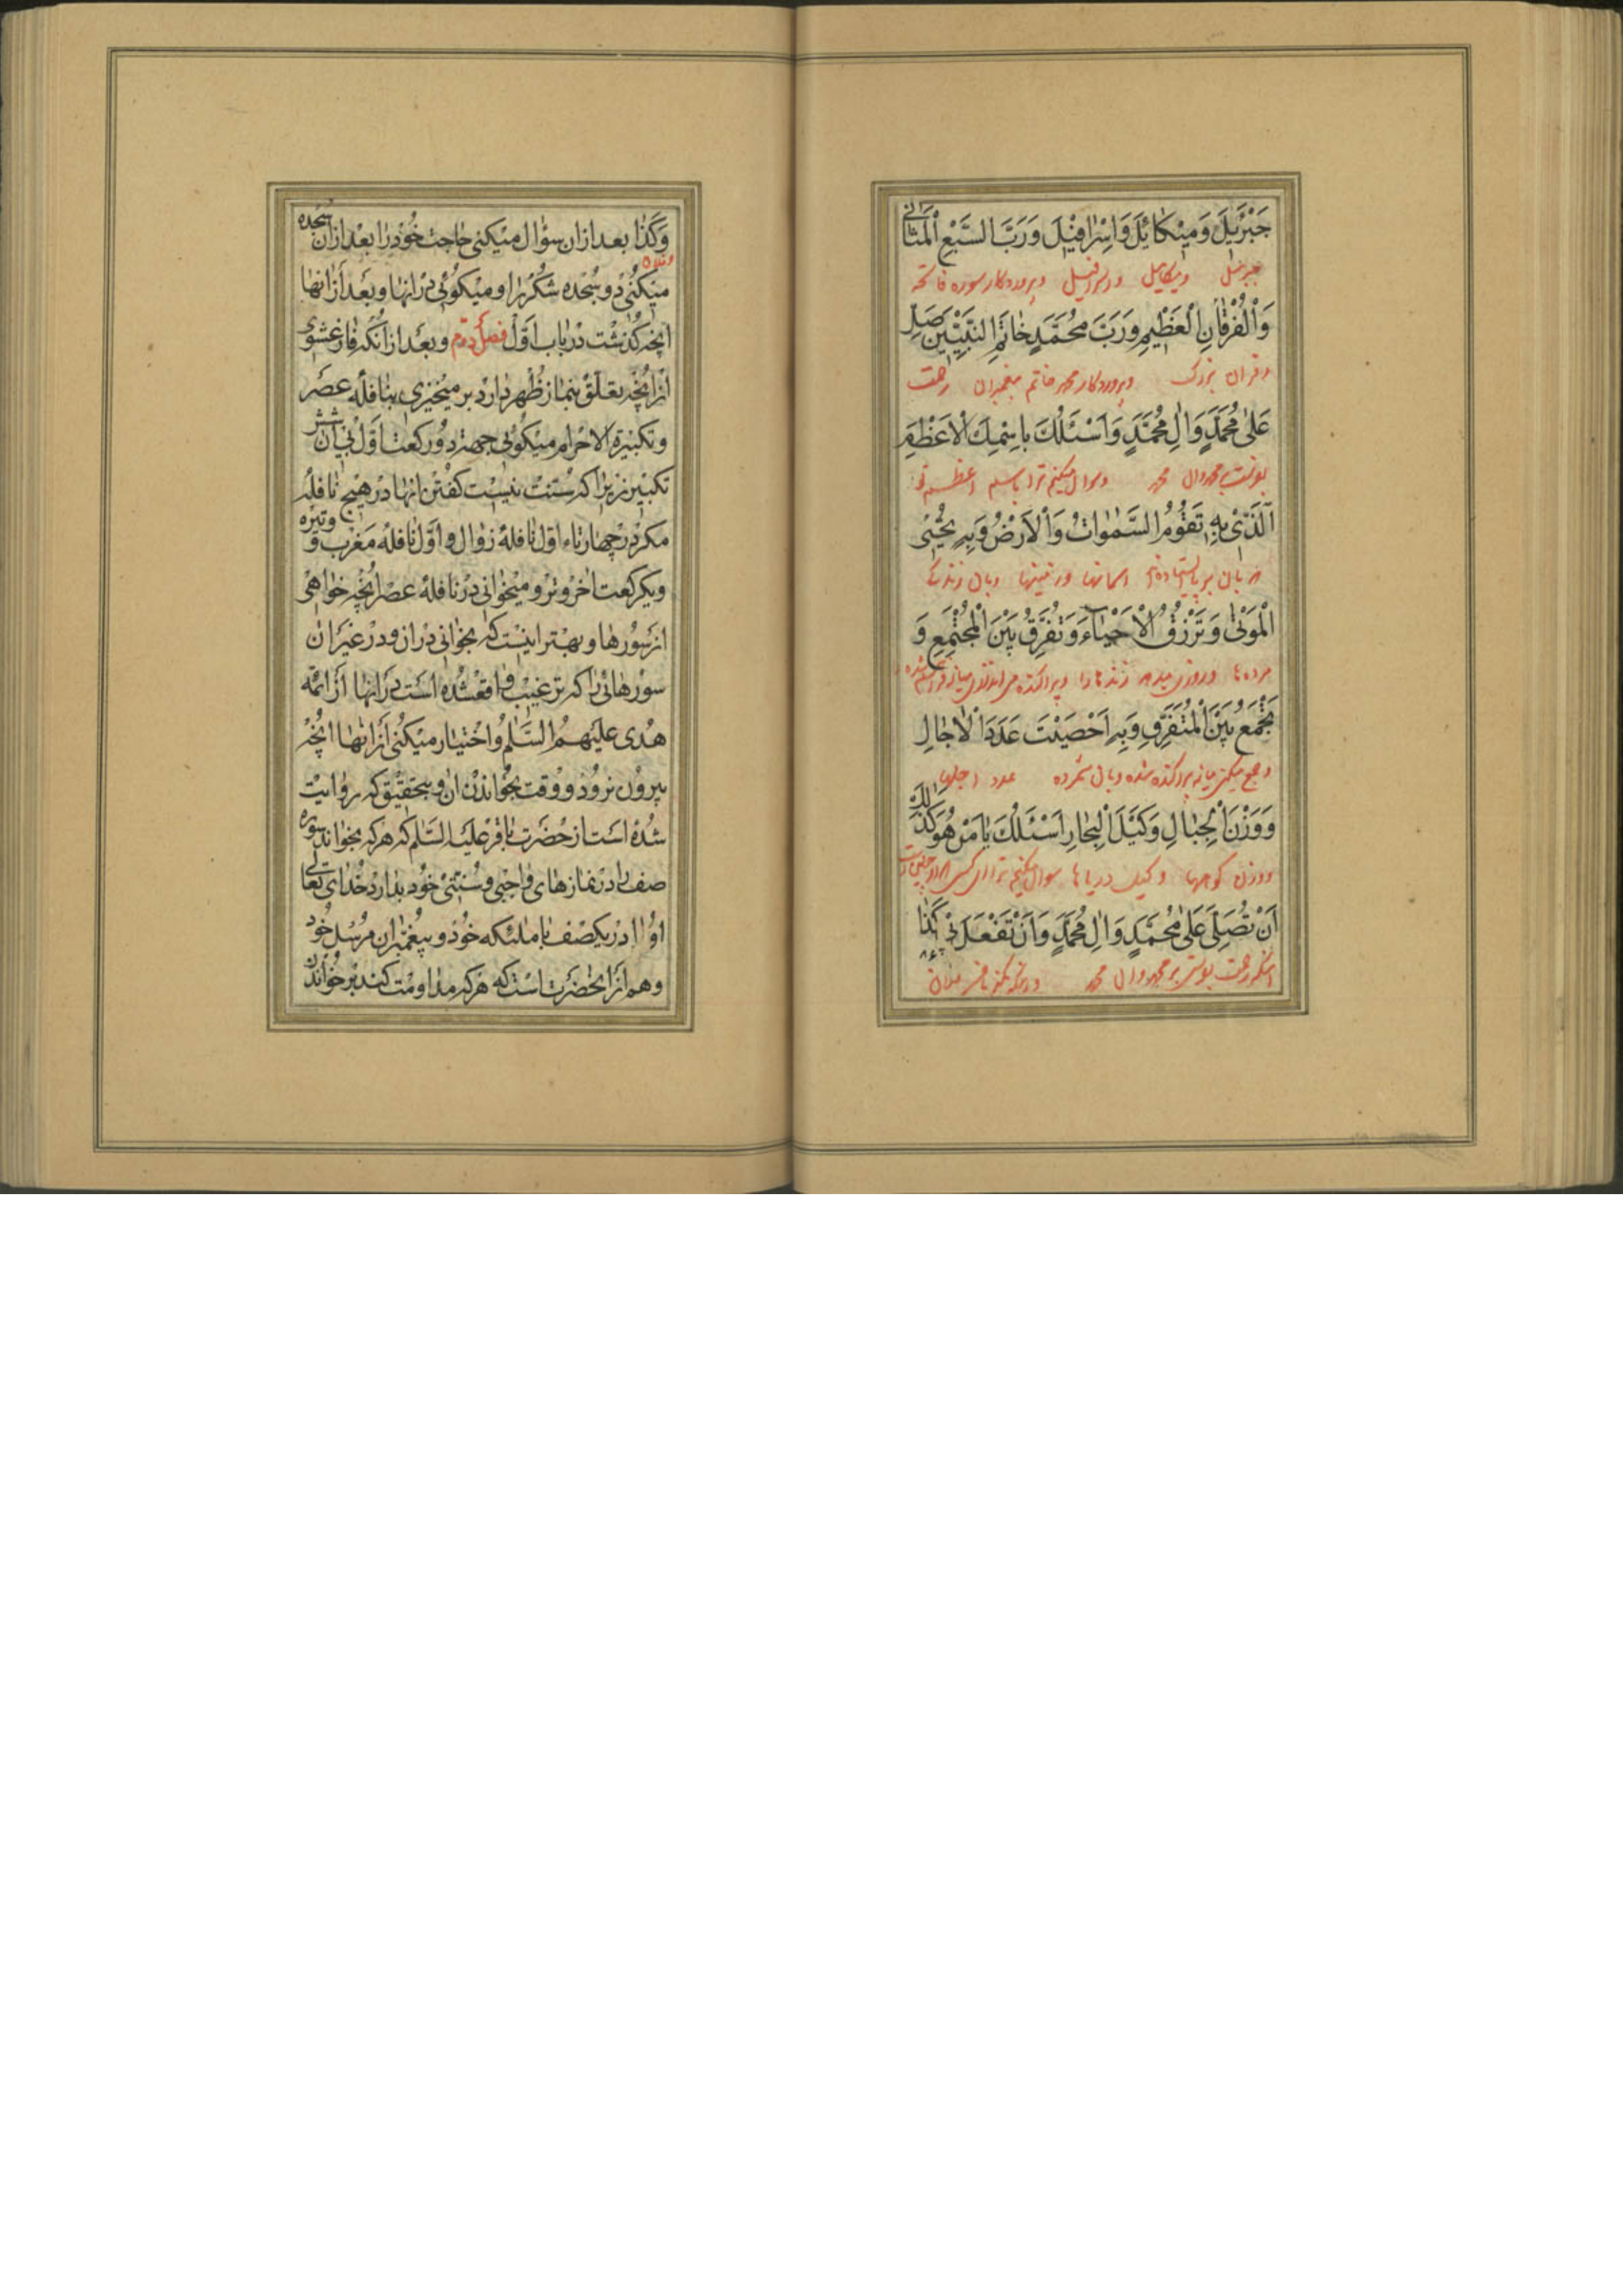 جَبْرَئیلَ وَمیٖکٰائیٖلَ وَاِسْرٰافیٖلَ وَرَبَّ السَّبْعِ الْمَثٰانیٖ
جبرئیل ومیکائیل واسرافیل وپروردکار سوره فاتحه
وَالْفُرْقٰانِ الْعَظیٖمِ وَرَبَّ مُحَمَّدٍ خٰاتَمِ النَّبِیّیٖنَ صَلِّ
وقران بزرک وپروردکار محمد خاتم پیغمبران رحمت
عَلیٰ مُحَمَّدٍ وَاٰلِ مُحَمَّدٍ وَاَسْئَلُكَ بِاسْمِكَ الْاَعْظَمِ
بفرست بمحمد وال محمد وسوال میکنم ترا باسم اعظم تو
اَلَّذیٖ بِهِ تَقُومُ السَّمٰوٰاتُ وَالْاَرْضُ وَبِهِ تُحْیِی
که بان بر پا ایستاده اسمانها وزمینها وبان زنده
الْمَوْتیٰ وَتَرْزُقُ الْاَحْیٰاءَ وَتُفَرِّقُ بَیْنَ الْمُجْتَمِعِ وَ
مرده ها وروزی میدهی زنده ها را وپراکنده می اندازی میان
تَجْمَعُ بَیْنَ الْمُتَفَرِّقِ وَبِهِ اَحْصَیْتَ عَدَدَ الْاٰجٰالِ
وجمع میکنی میانه پراکنده شده وبان شمرده عدد اجلها
وَوَزْنَ الْجِبٰالِ وَکَیْلَ الْبِحٰارِ اَسْئَلُكَ یٰا مَنْ هُوَ کَذٰلِكَ
ووزن کوهها وکیل دریاها سوال میکنم ترا ای کسی که او چنین است
اَنْ تُصَلِّیَ عَلیٰ مُحَمَّدٍ وَاٰلِ مُحَمَّدٍ وَاَنْ تَفْعَلَ بیٖ کَذٰا
اینکه رحمت بفرستی بر محمد وال محمد
وَکَذٰا بعد ازان سؤال میکنی حاجت خود را بعد ازان سجده
میکنی دو سجده شکر را ومیکوئی در انها وبعد از انها
انچه کذشت در باب اوّل فصل دوّم وبعد از انکه فارغ شوی
از انچه تعلّق بنماز ظهر دارد بر میخیزی بنافله عصر
وتکبیرة الاحرام میکوئی جهة دو رکعت اوّل بی ان شش
تکبیر زیرا که سنّت نیست کفتن انها در هیچ نافله
مکر در چهار تاء اوّل نافلهٔ زوال واوّل نافله مغرب و وتیره
ویکرکعت اخر وتر ومیخوانی در نافلهٔ عصر انچه خواهی
از سورها وبهتر اینست که بخوانی دران ودر غیر ان
سورهائی را که ترغیب واقع شده است در انها از ائمّه
هدی علیهم السّلٰم واختیار میکنی از انها انچه
بیرون نرود ووقت بخواندن ان وبتحقیق که روایت
شده است از حضرت باقر علیه السّلٰم که هرکه بخواند سوره
صف را در نمازهای واجبی وسنّتی خود بدارد خدای تعالی
او را در یکصف با ملئکه خود وپیغمبران مرسل خود
وهم از انحضرتست که هرکه مداومت کند بر خواندن